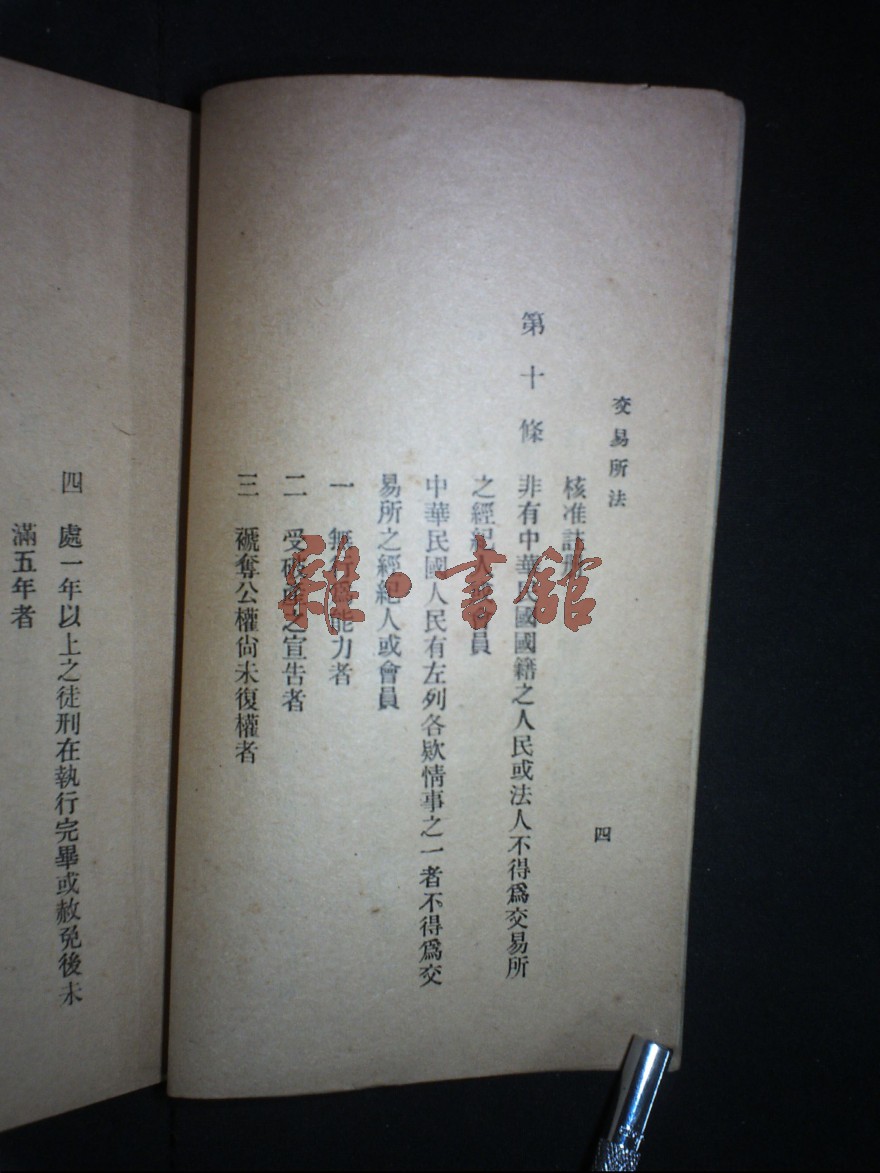 交易所法
四
核准註册
第十條 非有中華民國國籍之人民或法人不得爲交易所
之經紀人或會員
中華民國人民有左列各欵情事之一者不得爲交
易所之經紀人或會員
一 無行爲能力者
二 受破產之宣告者
三 褫奪公權尙未復權者
四 處一年以上之徒刑在執行完畢或赦免後未
滿五年者
雜·書館